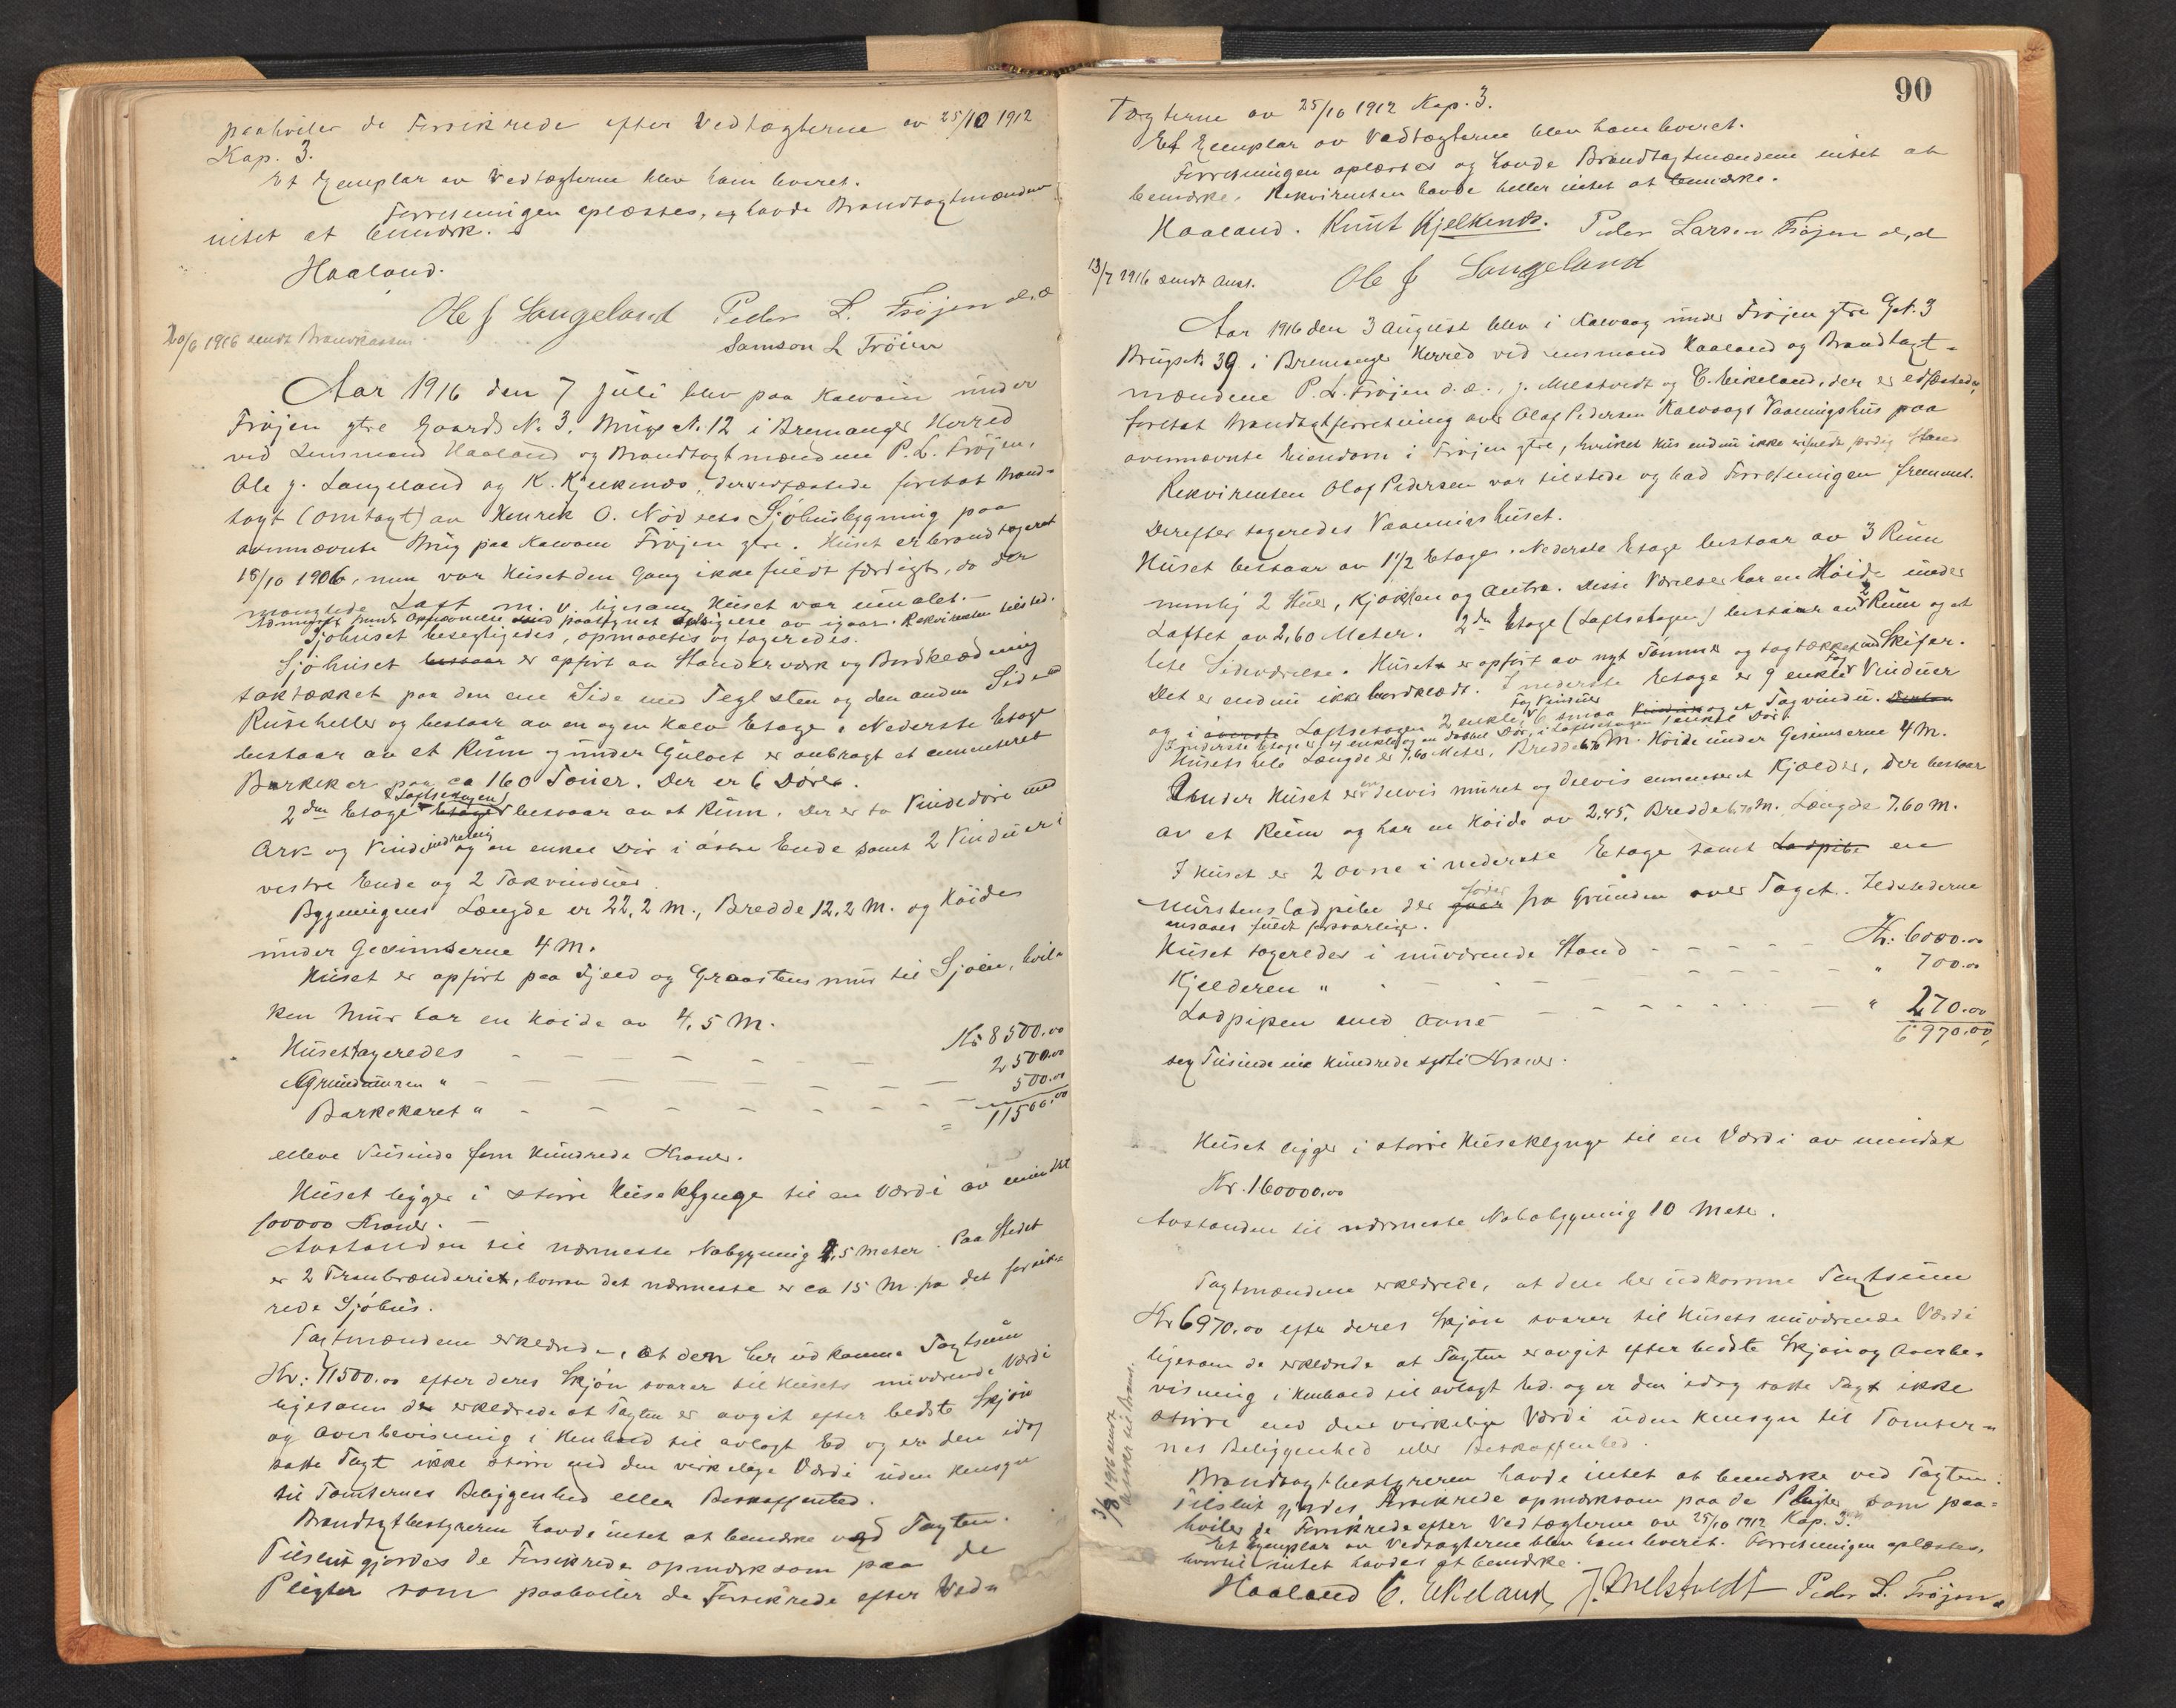 paahviler de Forsikrede efter Vedtægterne av 25/10 1912
Kap. 3.
Et Exemplar av Vedtægterne blev ham leveret.
Forretningen oplæstes, og havde Brandtagtmændene
intet at bemærk.
Haaland.
Ole J Langeland Peder L. Frøjen d.æ
Samson L Frøien
20/6 1916 sendt Brandkassen
Aar 1916 den 7 juli blev paa Kalvøin under
Frøjen ytre Gaards No. 3. Brugs No. 12 i Bremanger Herred
ved Lensmand Haaland og Brandtagtmændene P. L. Frøjen,
Ole J. Langeland og K. Kjelkenes, der er edfæstede foretat Brand-
tagt (omtagt) av Henrik O. Nød sets Sjøhusbygning paa
ovennævnte Brug paa Kalvøin Frøjen ytre. Huset er brandtageret
18/10 1906, men var Huset den Gang ikke fuldt færdigt, da der
manglede Laft m. v. ligesom Huset var umalet.—
av igaar. Rekvirenten tilsted.
Sjøhuset besegtigedes, opmaaltes og tageredes.
Sjøhuset bestaar er opført av Standerverk og Bordklædning
taktækket paa den ene Side med Tegl sten og den anden Side med
Ruseheller og bestaar av en og en halv Etage. Nederste Etage
bestaar av et Rum og under Gulvet er anbragt et cementeret
Barkekar paa ca 160 Tøner. Der er 6 Døre.
2den Etage (Loftsetagen) bestaar av et Rum. Der er to Vindedøre med
Ark og Vindeindretnig og en enkel Dør i østre Ende samt 2 Vinduer i
vestre Ende og 2 Takvinduer.
Bygningens Længde er 22,2 m., Bredde 12,2 M. og Høides
under Gesimserne 4 M.
Huset er opført paa Fjeld og Graastens mur til Sjøen, hvil-
ken Mur har en høide av 4,5 M.
Huset tageredes - - - - - - Kr 8500.00
Grundmuren " - - - - - - 2500.00
Barkekaret " - - - - - - 500.00
= 11500.00
elleve Tusinde fem Hundrede Kroner.
Huset ligger i større Huseklynge til en Værdi av mindst
100000 Kroner.—
Avstanden til nærmeste Nabygning 4,5 Meter. Paa Stedet
er 2 Tranbrænderier, hvorav det nærmeste er ca 15 M. fra det forsik-
rede Sjøhus.
Tagtmændene erklærede, at den her udkomne Tagtsum
Kr: 11500.00 efter deres Skjøn svarer til Husets nuværende Værdi
ligesom de erklærede at Tagten er avgit efter bedste Skjøn
og Overbevisning i Henhold til avlagt Ed og er den idag
satte Tagt ikke større end den virkelige Værdi uden Hensyn
til Tomternes Beliggenhed eller Beskaffenhed.
Brandtagtbestyreren havde intet at bemærke ved Tagten.
Tilslut gjordes de Forsikrede opmærksom paa de
Pligter som paahviler de Forsikrede efter Ved-
90
tægterne av 25/10 1912 Kap. 3.
Et Exemplar av Vedtægterne blev ham leveret.
Forretningen oplæstes og havde Brandtagtmændene intet at
bemærke. Rekvirenten havde heller intet at bemærke.
Haaland. Knut Kjelkenes. Peder Larsen Frøjen d,æ
Ole J Langeland
13/7 1916 sendt Anst.
Aar 1916 den 3 august blev i Kalvaag under Frøjen ytre Gt. 3
Brugs No. 39 i Bremanger Herred ved Lensmand Haaland og Brandtagt-
mændene P. L. Frøjen d.æ., J. Melstvedt og C. Eikeland, der er edfæstede,
foretat Brandtagtforretning over Olaf Pedersen Kalvaags Vaaningshus paa
ovennævnte Eiendom i Frøjen ytre, hvilket Hus endnu ikke er færdig
Rekvirenten Olaf Pedersen var tilstede og bad Forretningen fremmet.
Derefter tageredes Vaaningshuset.
Huset bestaar av 1 1/2 Etage. Nederste Etage bestaar av 3 Rum
nemlig 2 Stuer, Kjøkken og Entre. Disse Værelser har en Høide under
Laftet av 2,60 Meter. 2den Etage (Laftsetagen) bestaar av 2 Rum og et
lite Sideværelse. Huset er opført av nyt Tømmer og tagtækket med Skifer.
Det er endnu ikke bordklædt. I nederste Etage er 9 enkle Fag Vinduer
og i øverste Laftsetagen 2 enkle Fag Vinduer 6 smaa og et Tagvindu.
I nederste Etage er 4 enkle og en dobbel Dør, i Laftsetagen 1 enkel Dør.
Husets hele Længde er 7,60 Meter, Bredde 6,70 M. Høide under Gesimserne 4 M.
Under Huset er en delvis muret og delvis cementeret Kjælder, der bestaar
av et Rum og har en Høide av 2,45, Bredde 6,70 M. Længde 7,60 M.
I Huset er 2 ovne i nederste Etage samt Ladpibe en
Murstensladpibe der gaar fra Grunden over Taget. Ildstederne
ansaaes fuldt forsvarlige.
Huset tageredes i nuværende Stand - - - - - Kr: 6000.00
Kjelderen " - - - - - " 700.00
Ladpipen med Ovne - - - - - " 270.00
6970.00,
sex Tusinde ni Hundrede sytti Kroner.
Huset ligger i større Huseklynge til en Værdi av mindst
Kr. 160000.00
Avstanden til nærmeste Nabobygning 10 Meter.
Tagtmændene erklærede, at den her udkomne Tagtsum
Kr 6970.00 efter deres Skjøn svarer til Husets nuværende Værdi
ligesom de erklærede at Tagten er avgit efter bedste Skjøn og Overbe-
visning i Henhold til avlagt Ed. og er den idag satte Tagt ikke
større end den virkelige Værdi uden Hensyn til Tomter-
nes Beliggenhed eller Beskaffenhed.
Brandtagtbestyreren havde intet at bemærke ved Tagten.
Tilslut gjordes Forsikrede opmærksom paa de Pligter som paa-
hviler de Forsikrede efter Vedtægterne av 25/10 1912 Kap. 3.
Et Exemplar av Vedtægterne blev ham leveret. Forretningen oplæstes,
hvortil intet havdes at bemærke.
Haaland C. Eikeland, J. Melstvedt Peder L. Frøjen
3/8 1916